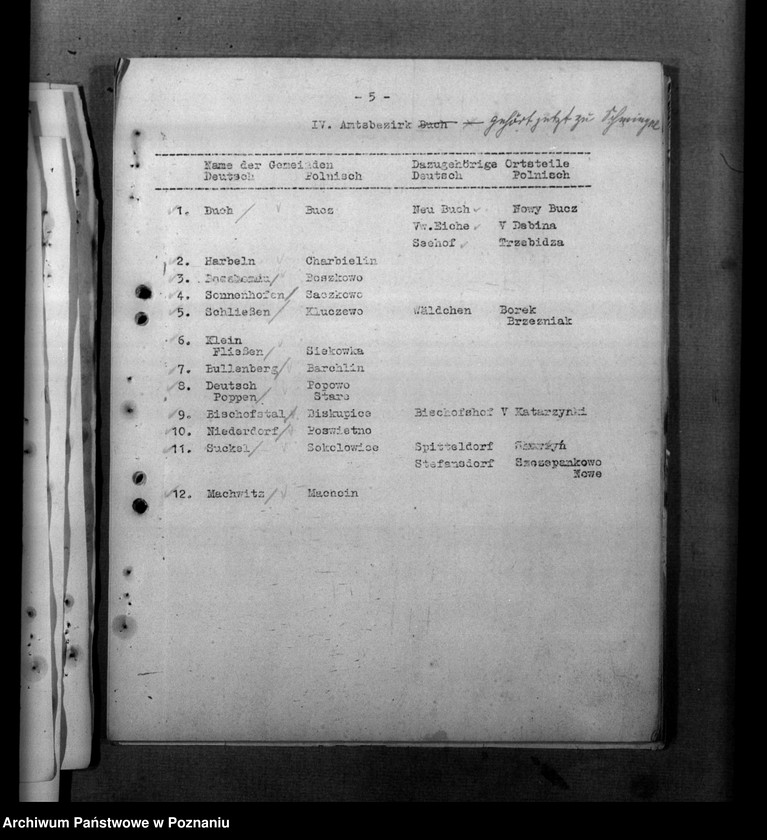 - 5 -
IV. Amtsbezirk Buch gehört jetzt zu Schmiegel
Name der Gemeinden Dazugehörige Ortsteile
Deutsch Polnisch Deutsch Polnisch
1. Buch Bucz Neu Buch Nowy Bucz
Vw.Eiche V Dabina
Seehof Trzebidza
2. Harbeln Charbielin
3. Boszkowo
4. Sonnenhofen Saczkowo
5. Schließen Kluczewo Wäldchen Borek
Brzezniak
6. Klein
Fließen Siekowka
7. Bullenberg Barchlin
8. Deutsch Popowo
Poppen Stare
9. Bischofstal Biskupice Bischofshof V Katarzynki
10. Niederdorf Poswietno
11. Suckel Sokolowice Spitteldorf
Stefansdorf Szczepankowo
Nowe
12. Machwitz Machcin
Archiwum Państwowe w Poznaniu